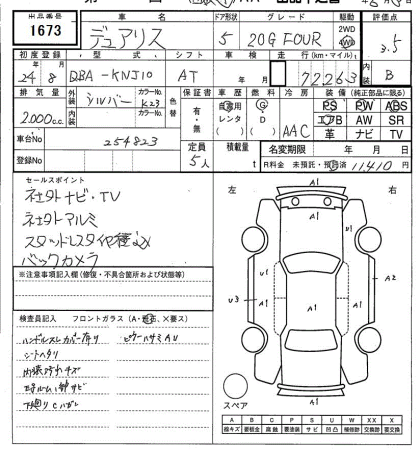 出品番号 車名 ドア形状 グレード 駆動 評価点
1673 デュアリス 5 20G FOUR 2WD 4WD 3.5
初度登録 型式 シフト 車検 走行(km・マイル) 装備(純正部品に限る) 内装
24 8 DBA-KNJ10 AT 年 月 72263 B
排気量 外装 カラーNo. 色替 保証書 車歴 燃料 冷房 PS PW ABS
2,000c.c. シルバー K23 有・無 自家用 レンタ G D AAC エアB AW SR
内装 カラーNo. 革 ナビ TV
車台No 254823 定員 積載量 名変期限 年 月 日
登録No 5人 t R料金 未預託・預託済 11,410円
セールスポイント
社外ナビ・TV
社外アルミ
スタッドレスタイヤ積込
バックカメラ
※注意事項記入欄(修復・不具合箇所および状態等)
検査員記入 フロントガラス(A・飛石、X要ス)
ハンドルスレ カバー有り
シートヘタリ
内張汚れキズ
下廻りサビ
左 右
A1
A1 U1
U1 A1 A2
U3 A1 A1
A1
A1
スペア
A B C P S U W X XX
線キズ 要鈑金 腐蝕 要塗装 サビ 凹凸 補修跡 交換跡 要交換